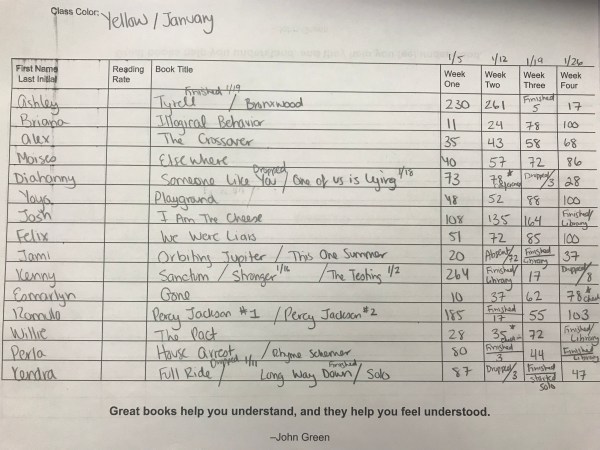 Class Color: Yellow / January
1/5 1/12 1/19 1/26
First Name Last Initial Reading Rate Book Title Week One Week Two Week Three Week Four
Ashley Tyrell Finished 1/19 / Bronxwood 230 261 Finished 5 17
Briana Illogical Behavior 11 24 78 100
Alex The Crossover 35 43 58 68
Moises Elsewhere 40 57 72 86
Diahanny Someone Like You Dropped / One of us is lying 1/18 73 78* Dropped/3 28
Playground 48 52 88 100
Josh I Am The Cheese 108 135 164 Finished/Library
Felix We Were Liars 51 72 85 100
Jami Orbiting Jupiter / This One Summer 20 Absent/72 Finished Library 37
Kenny Sanctum / Stronger 1/16 / The Testing 1/2 264 Finished/Library 17 Dropped/8
Gone 10 37 62 78*
Percy Jackson #1 / Percy Jackson #2 185 Finished 17 55 103
Willie The Pact 28 35* 72 Finished/Library
Perla House Arrest / Rhyme Schemer 80 Finished 3 44 Finished Library
Kendra Full Ride Dropped 1/11 / Long Way Down Finished / Solo 87 Dropped/3 Finished started Solo 47
Great books help you understand, and they help you feel understood.
–John Green